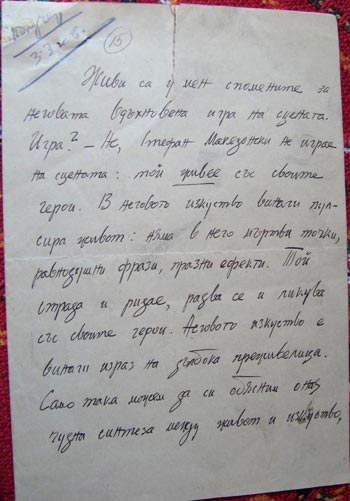 15
Живи са у мен спомените за
неговата вдъхновена игра на сцената.
Игра? – Не, Стефан Македонски не играе
на сцената: той живее със своите
герои. В неговото изкуство винаги пул-
сира живот: няма в него мъртви точки,
равнодушни фрази, празни ефекти. Той
страда и ридае, радва се и ликува
със своите герои. Неговото изкуство е
винаги израз на дълбока преживелица.
Само така можем да си обясним оная
чудна синтеза между живот и изкуство,